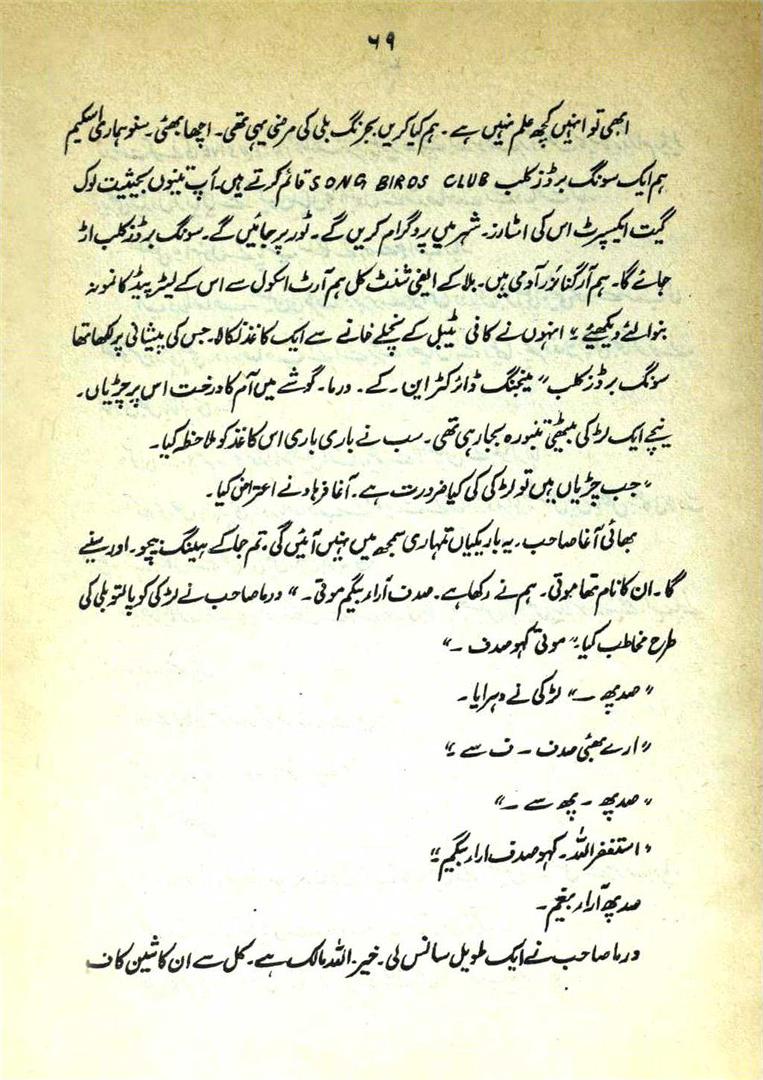 ۶۹
ابھی تو انہیں کچھ علم نہیں ہے۔ ہم کیا کریں بجرنگ بلی کی مرضی یہی تھی۔ اچھا بھئی۔ سنو ہماری اسکیم
ہم ایک سونگ برڈز کلب SONG BIRDS CLUB قائم کرتے ہیں۔ آپ تینوں بحیثیت لوک
گیت ایکسپرٹ اس کی اسٹارز۔ شہر میں پروگرام کریں گے۔ ٹور پر جائیں گے۔ سونگ برڈز کلب اڑ
جائے گا۔ ہم آرگنائزر آدمی ہیں۔ بلا کے ایفی شنٹ کل ہم آرٹ اسکول سے اس کے لیٹر ہیڈ کا نمونہ
بنوا لئے دیکھئیے" انہوں نے کافی ٹیبل کے نچلے خانے سے ایک کاغذ نکالا۔ جس کی پیشانی پر لکھا تھا
سونگ برڈز کلب" مینجنگ ڈائرکٹر این۔ کے۔ ورما۔ گوشے میں آم کا درخت اس پر چڑیاں۔
نیچے ایک لڑکی بیٹھی تنبورہ بجا رہی تھی۔ سب نے باری باری اس کاغذ کو ملاحظہ کیا۔
"جب چڑیاں ہیں تو لڑکی کی کیا ضرورت ہے۔ آغا فرہاد نے اعتراض کیا۔
بھائی آغا صاحب۔ یہ باریکیاں تمہاری سمجھ میں نہیں آئیں گی۔ تم جا کے ہینگ بیچو۔ اور سنیے
گا۔ ان کا نام تھا موتی۔ ہم نے رکھا ہے۔ صدف آراء بیگم موتی۔" ورما صاحب نے لڑکی کو پالتو بلی کی
طرح مخاطب کیا۔" موتی کہو صدف ۔"
"صدپھ ۔" لڑکی نے دہرایا۔
"ارے بھئی صدف ۔ ف سے"
"صدپھ ۔ پھ سے ۔"
"استغفر اللہ۔ کہو صدف اراء بیگم"
صدپھ آراء بیغم۔
ورما صاحب نے ایک طویل سانس لی۔ خیر۔ اللہ مالک ہے۔ کل سے ان کا شین کاف